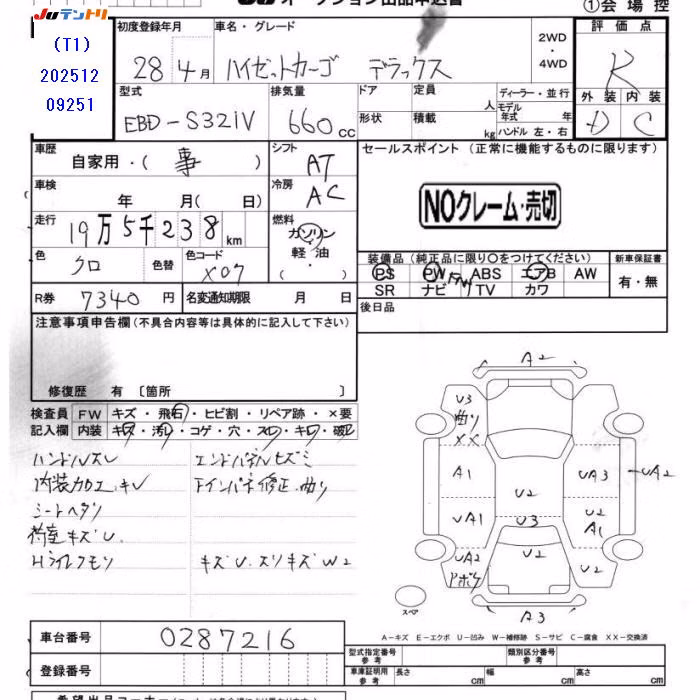 JUテントリ
オークション出品申込書
①会場控
(T1)
202512
09251
初度登録年月
28年4月
車名・グレード
ハイゼットカーゴ デラックス
2WD
・
4WD
評価点
R
型式
EBD-S321V
排気量
660cc
ドア
形状
定員
人
積載
kg
ディーラー・並行
モデル年式 年
ハンドル 左・右
外装 内装
D C
車歴
自家用・(事)
シフト
AT
セールスポイント (正常に機能するものに限ります)
NOクレーム・売切
車検
年 月( 日)
冷房
AC
走行
19万5千238km
燃料
ガソリン
軽油
・
( )
色
クロ
色替
色コード
X07
装備品(純正品に限り○をつけてください)
新車保証書
PS PW ABS エアB AW
SR ナビ TV カワ
有・無
R券
7340円
名変通知期限 月 日
後日品
注意事項申告欄(不具合内容等は具体的に記入して下さい)
修復歴 有〔箇所 〕
検査員記入欄
FW キズ・飛石・ヒビ割・リペア跡・×要
内装 キズ・汚レ・コゲ・穴・スレ・キレ・破レ
ハンドルスレ
内装加工キレ
シートヘタリ
荷室キズU
Hライトクモリ
エンドパネルヒズミ
キズU.スリキズW2
A2
U3
曲り
XX
A1
UA1
UA2
U2
U3
U2
UA3
UA2
U2
A1
U2
A3
スペア
A-キズ E-エクボ U-凹み W-補修跡 S-サビ C-腐食 XX-交換済
車台番号
0287216
登録番号
型式指定番号
参考
類別区分番号
参考
車庫証明用
参考
長さ cm
幅 cm
高さ cm